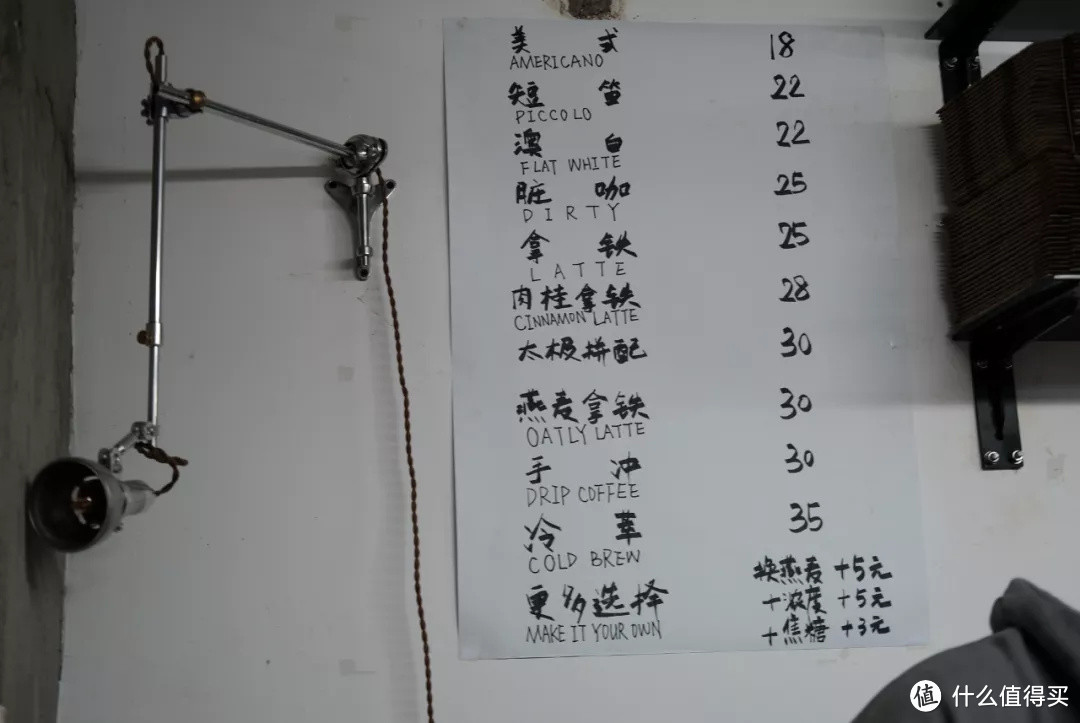 美 式 18
AMERICANO
短 笛 22
PICCOLO
澳 白 22
FLAT WHITE
脏 咖 25
DIRTY
拿 铁 25
LATTE
肉桂拿铁 28
CINNAMON LATTE
太极拼配 30
燕麦拿铁 30
OATLY LATTE
手 冲 30
DRIP COFFEE
冷 萃 35
COLD BREW
更多选择
MAKE IT YOUR OWN
换燕麦 +5元
+浓度 +5元
+焦糖 +3元
值 什么值得买